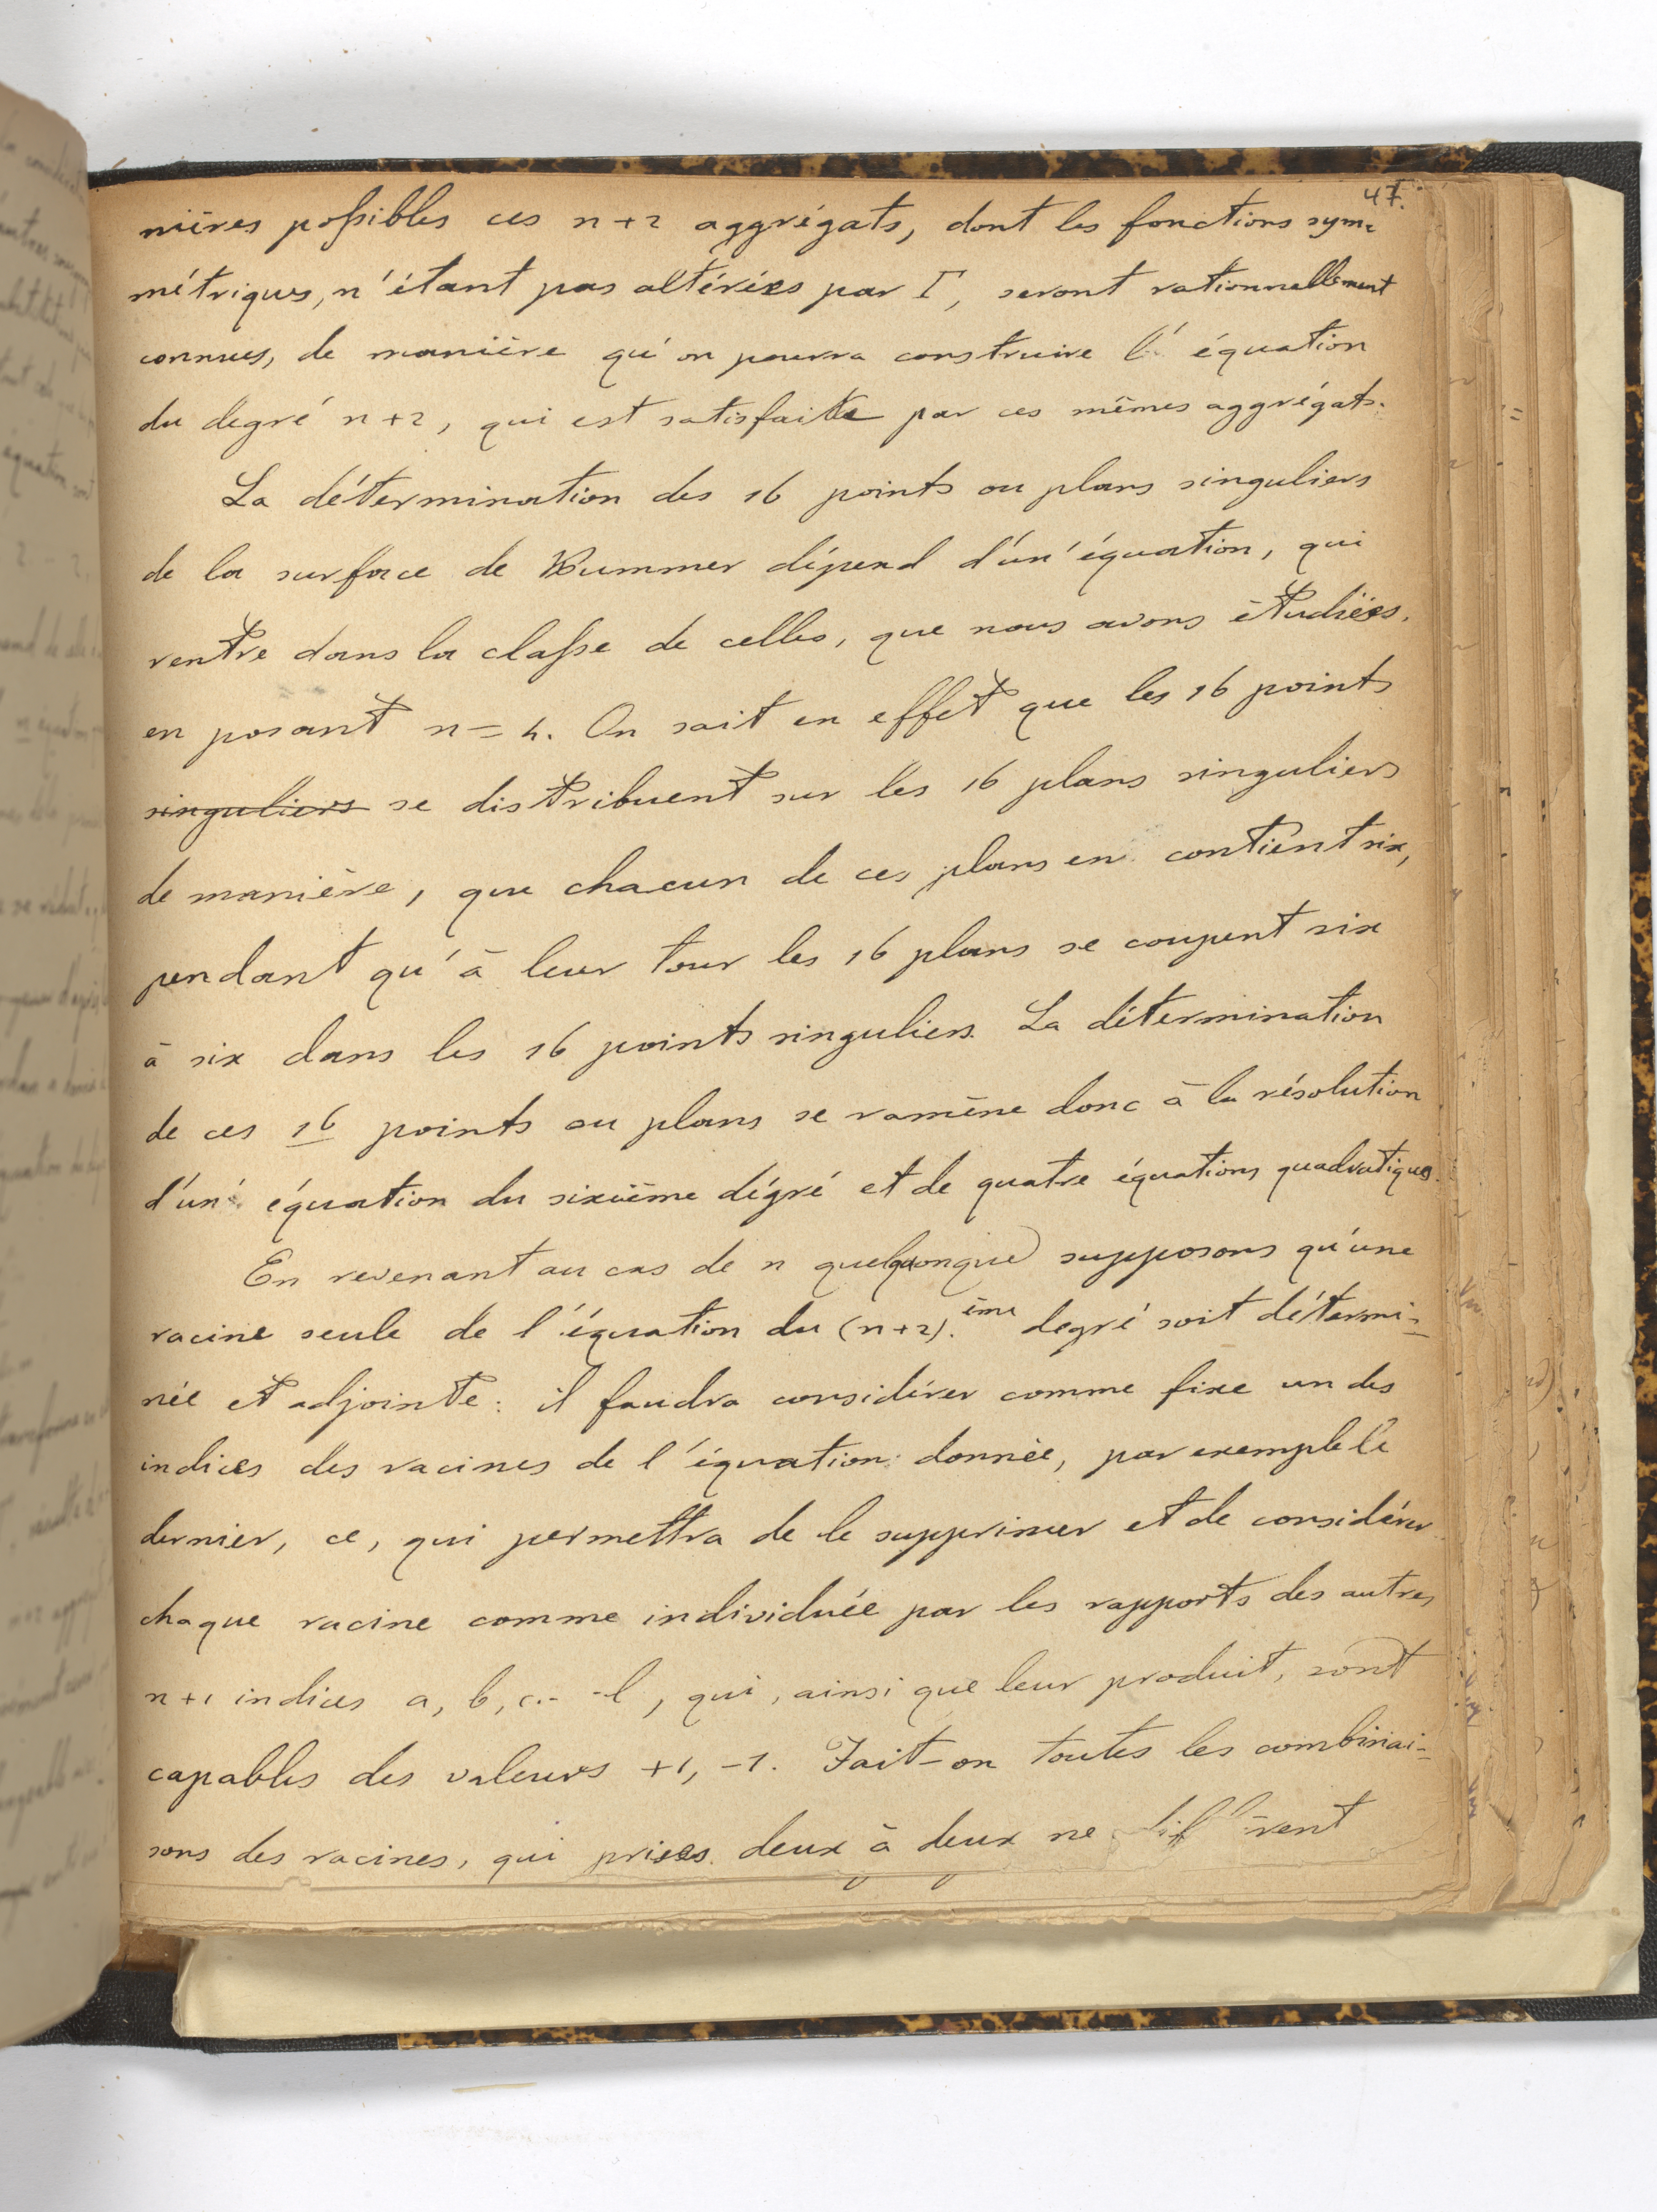 47.
nières possibles ces n+2 aggrégats, dont les fonctions sym=
métriques, n'étant pas altérées par Γ, seront rationnellement
connues, de manière qu'on pourra construire l'équation
du degré n+2, qui est satisfaite par ces mêmes aggrégats.
La détermination des 16 points ou plans singuliers
de la surface de Kummer dépend d'un'équation, qui
rentre dans la classe de celles, que nous avons étudiées,
en posant n=4. On sait en effet que les 16 points
singuliers se distribuent sur les 16 plans singuliers
de manière, que chacun de ces plans en contient six,
pendant qu'à leur tour les 16 plans se coupent six
à six dans les 16 points singuliers. La détermination
de ces 16 points ou plans se ramène donc à la résolution
d'un' équation du sixième dégré et de quatre équations quadratiques.
En revenant au cas de n quelquonque supposons qu'une
racine seule de l'équation du (n+2).ème degré soit détermi=
née et adjointe: il faudra considérer comme fixe un des
indices des racines de l'équation donnée, par exemple le
dernier, ce, qui permettra de le supprimer et de considérer
chaque racine comme individuée par les rapports des autres
n+1 indices a, b, c.. -l, qui, ainsi que leur produit, sont
capables des valeurs +1, -1. Fait-on toutes les combinai=
sons des racines, qui prises deux à deux ne diffèrent